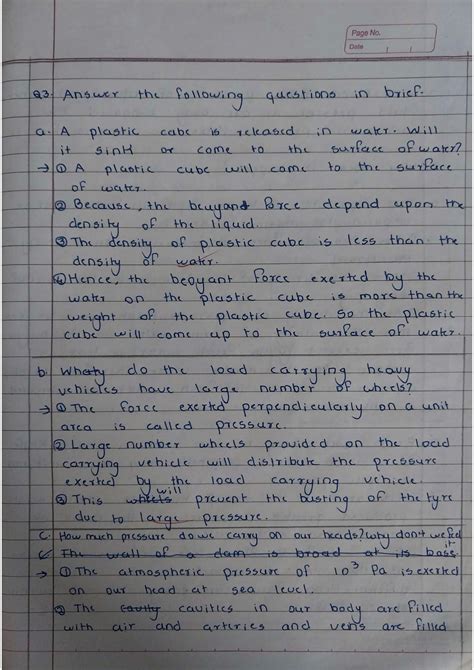 Page No.
Date
Q3. Answer the following questions in brief.
a. A plastic cube is released in water. Will
it sink or come to the surface of water?
→ ① A plastic cube will come to the surface
of water.
② Because, the beuyant force depend upon the
density of the liquid.
③ The density of plastic cube is less than the
density of water.
④ Hence, the beoyant force exerted by the
water on the plastic cube is more than the
weight of the plastic cube. So the plastic
cube will come up to the surface of water.
b. Why do the load carrying heavy
vehicles have large number of wheels?
→ ① The force exerted perpendicularly on a unit
area is called pressure.
② Large number wheels provided on the load
carrying vehicle will distribute the pressure
exerted by the load carrying vehicle.
③ This wheels will prevent the busting of the tyre
due to large pressure.
C. How much pressure do we carry on our heads? why don't we feel it
c. The wall of a dam is broad at its base
→ ① The atmospheric pressure of 10³ Pa is exerted
on our head at sea level.
② The cavity cavities in our body are filled
with air and arteries and veins are filled